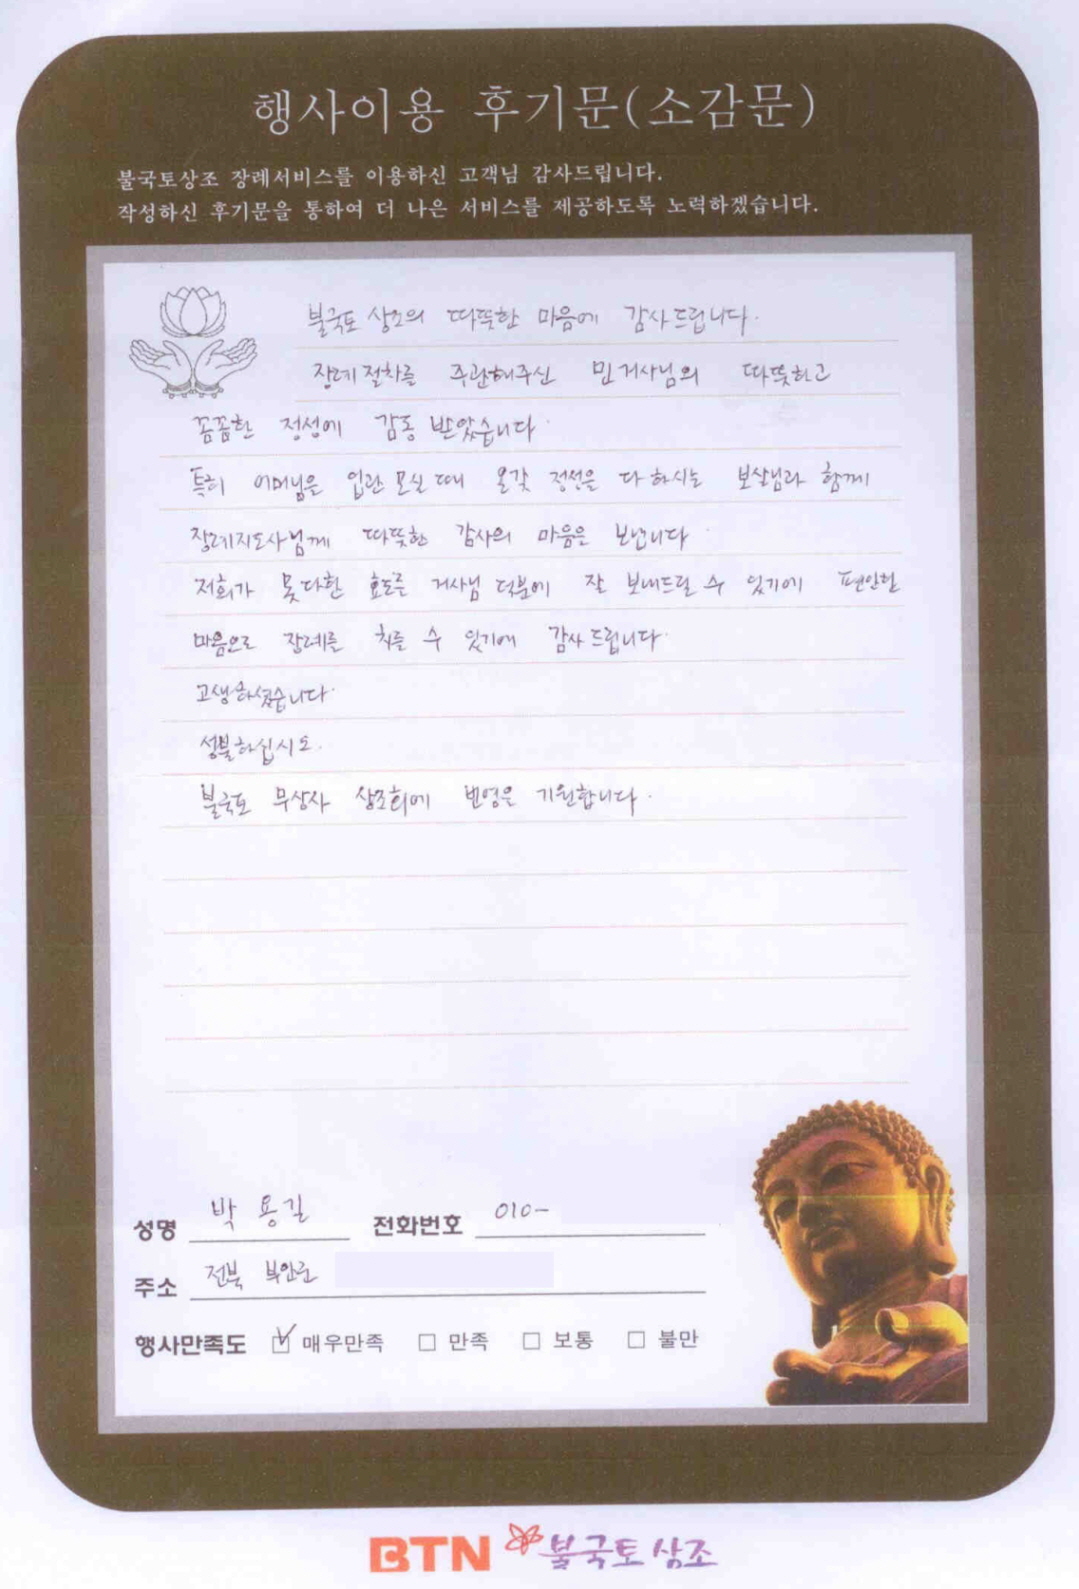 행사이용 후기문(소감문)
불국토상조 장례서비스를 이용하신 고객님 감사드립니다.
작성하신 후기문을 통하여 더 나은 서비스를 제공하도록 노력하겠습니다.
불국토 상조의 따뜻한 마음에 감사드립니다.
장례절차를 주관해주신 민거사님의 따뜻하고
꼼꼼한 정성에 감동 받았습니다.
특히 어머님을 입관 모실 때에 온갖 정성을 다 하시는 보살님과 함께
장례지도사님께 따뜻한 감사의 마음을 보냅니다.
저희가 못다한 효도를 거사님 덕분에 잘 보내드릴 수 있기에 편안한
마음으로 장례를 치를 수 있기에 감사드립니다.
고생하셨습니다.
성불하십시오.
불국토 무상사 상조회에 번영을 기원합니다.
성명 박용길 전화번호 010-
주소 전북 부안군
행사만족도 ☑ 매우만족 □ 만족 □ 보통 □ 불만
BTN 불국토상조